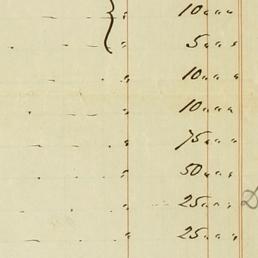 10 " " "
5 " " "
10 " " "
10 " " "
75 " " "
50 " " "
25 " " "
25 " " "